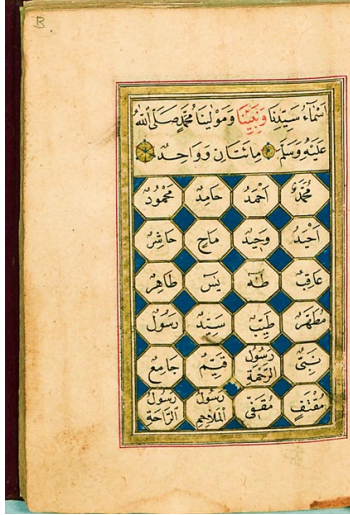 B
اَسْمَاءُ سَيِّدِنَا وَنَبِيِّنَا وَمَوْلٰينَا مُحَمَّدٍ صَلَّى اللهُ
عَلَيْهِ وَسَلَّمَ مِائَتَانِ وَوَاحِدٌ
مُحَمَّدٌ اَحْمَدُ حَامِدٌ مَحْمُودٌ
اَحِيدٌ وَحِيدٌ مَاحٍ حَاشِرٌ
عَاقِبٌ طٰهٰ يٰسٓ طَاهِرٌ
مُطَهَّرٌ طَيِّبٌ سَيِّدٌ رَسُولٌ
نَبِيٌّ رَسُولُ الرَّحْمَةِ قَيِّمٌ جَامِعٌ
مُقْتَفٍ مُقَفًّى رَسُولُ الْمَلَاحِمِ رَسُولُ الرَّاحَةِ